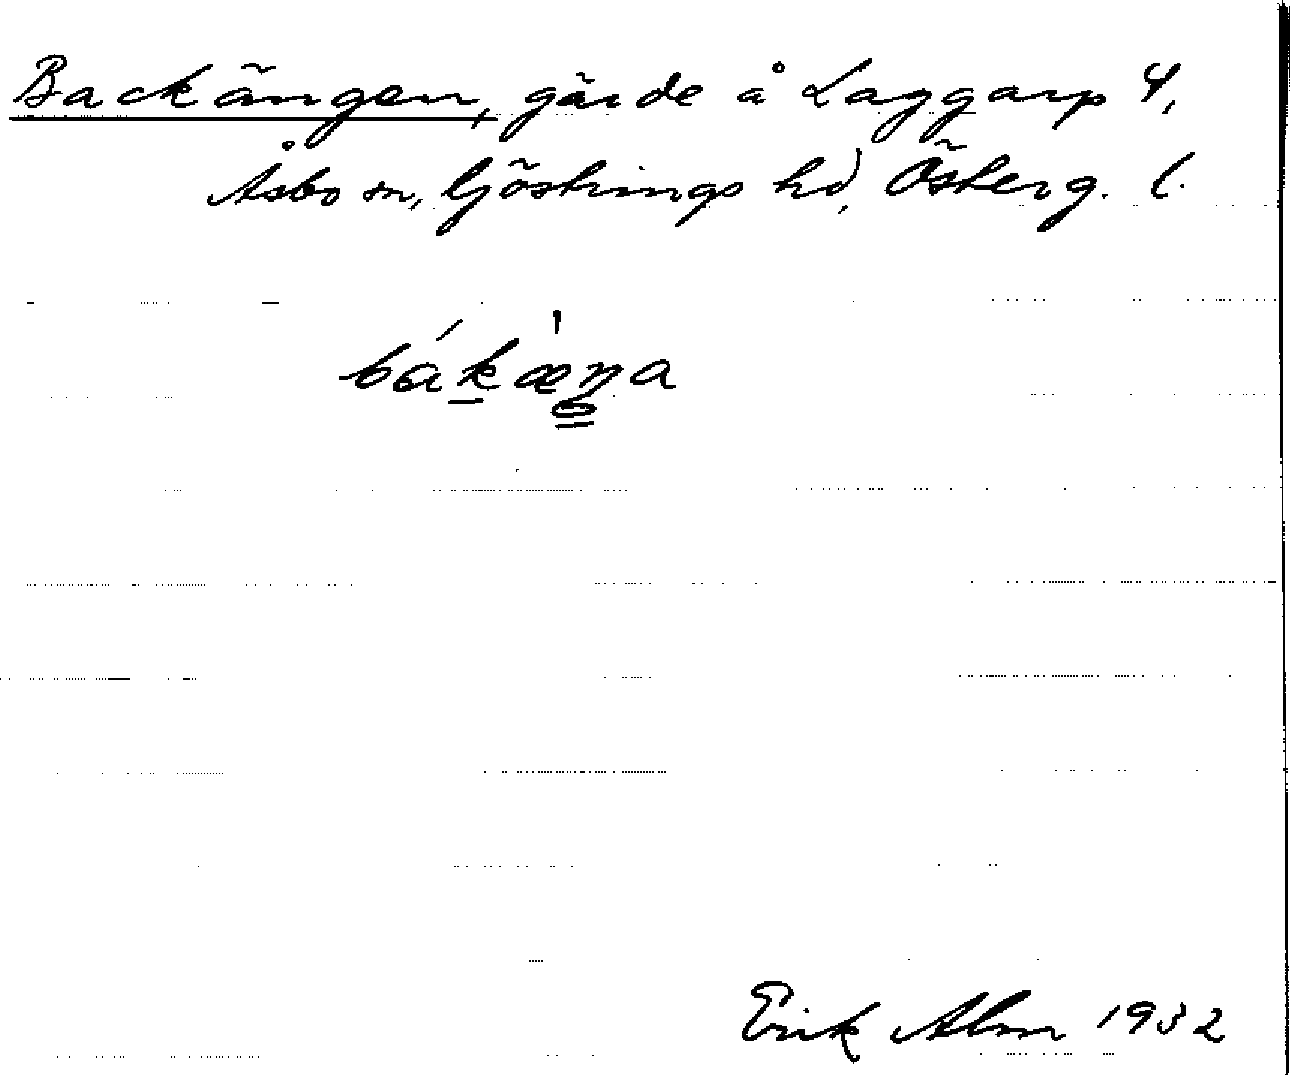 Backängen, gärde å Laggarp 4,
Åsbo sn, Göstrings hd, Österg. l.
bákæŋa
Erik Alm 1932